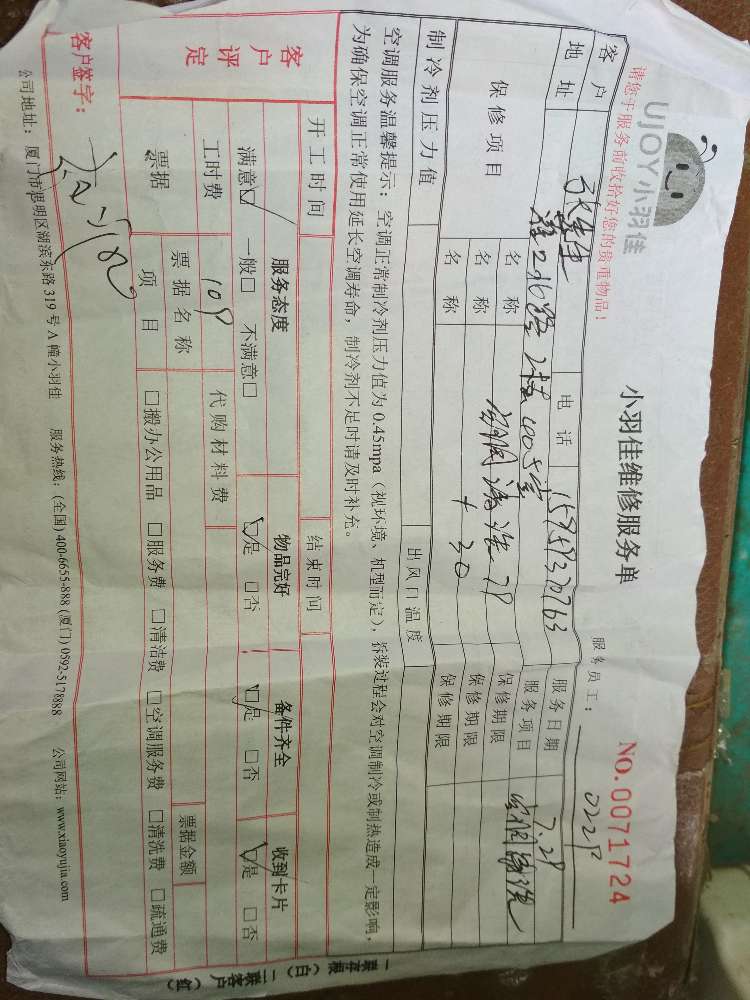 UJOY小羽佳
小羽佳维修服务单
NO.0071724
请您于服务前收拾好您的贵重物品!
服务员工:
客户
电话
服务日期 7.29
地址
服务项目
保修项目
名称
保修期限
名称
79
保修期限
名称
+30
保修期限
制冷剂压力值
出风口温度
空调服务温馨提示:空调正常制冷剂压力值为0.45mpa(视环境、机型而定),拆装过程会对空调制冷或制热造成一定影响,
为确保空调正常使用延长空调寿命,制冷剂不足时请及时补充。
开工时间
结束时间
客户评定
服务态度
物品完好
备件齐全
收到卡片
满意☑ 一般□ 不满意□
☑是 □否
☑是 □否
☑是 □否
工时费
109
代购材料费
票据
票据名称
票据金额
项目
□搬办公用品 □服务费 □清洁费 □空调服务费 □清洗费 □疏通费
客户签字:
公司地址:厦门市思明区湖滨东路319号A幢小羽佳 服务热线:(全国)400-6655-888(厦门)0592-5178888 公司网站:www.xiaoyujia.com
一联存根(白)二联客户(红)